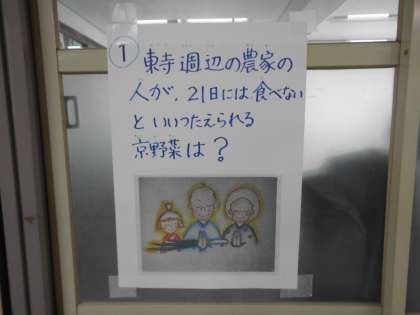 ①
東寺週辺の農家の
人が、21日には食べない
といいつたえられる
京野菜は？